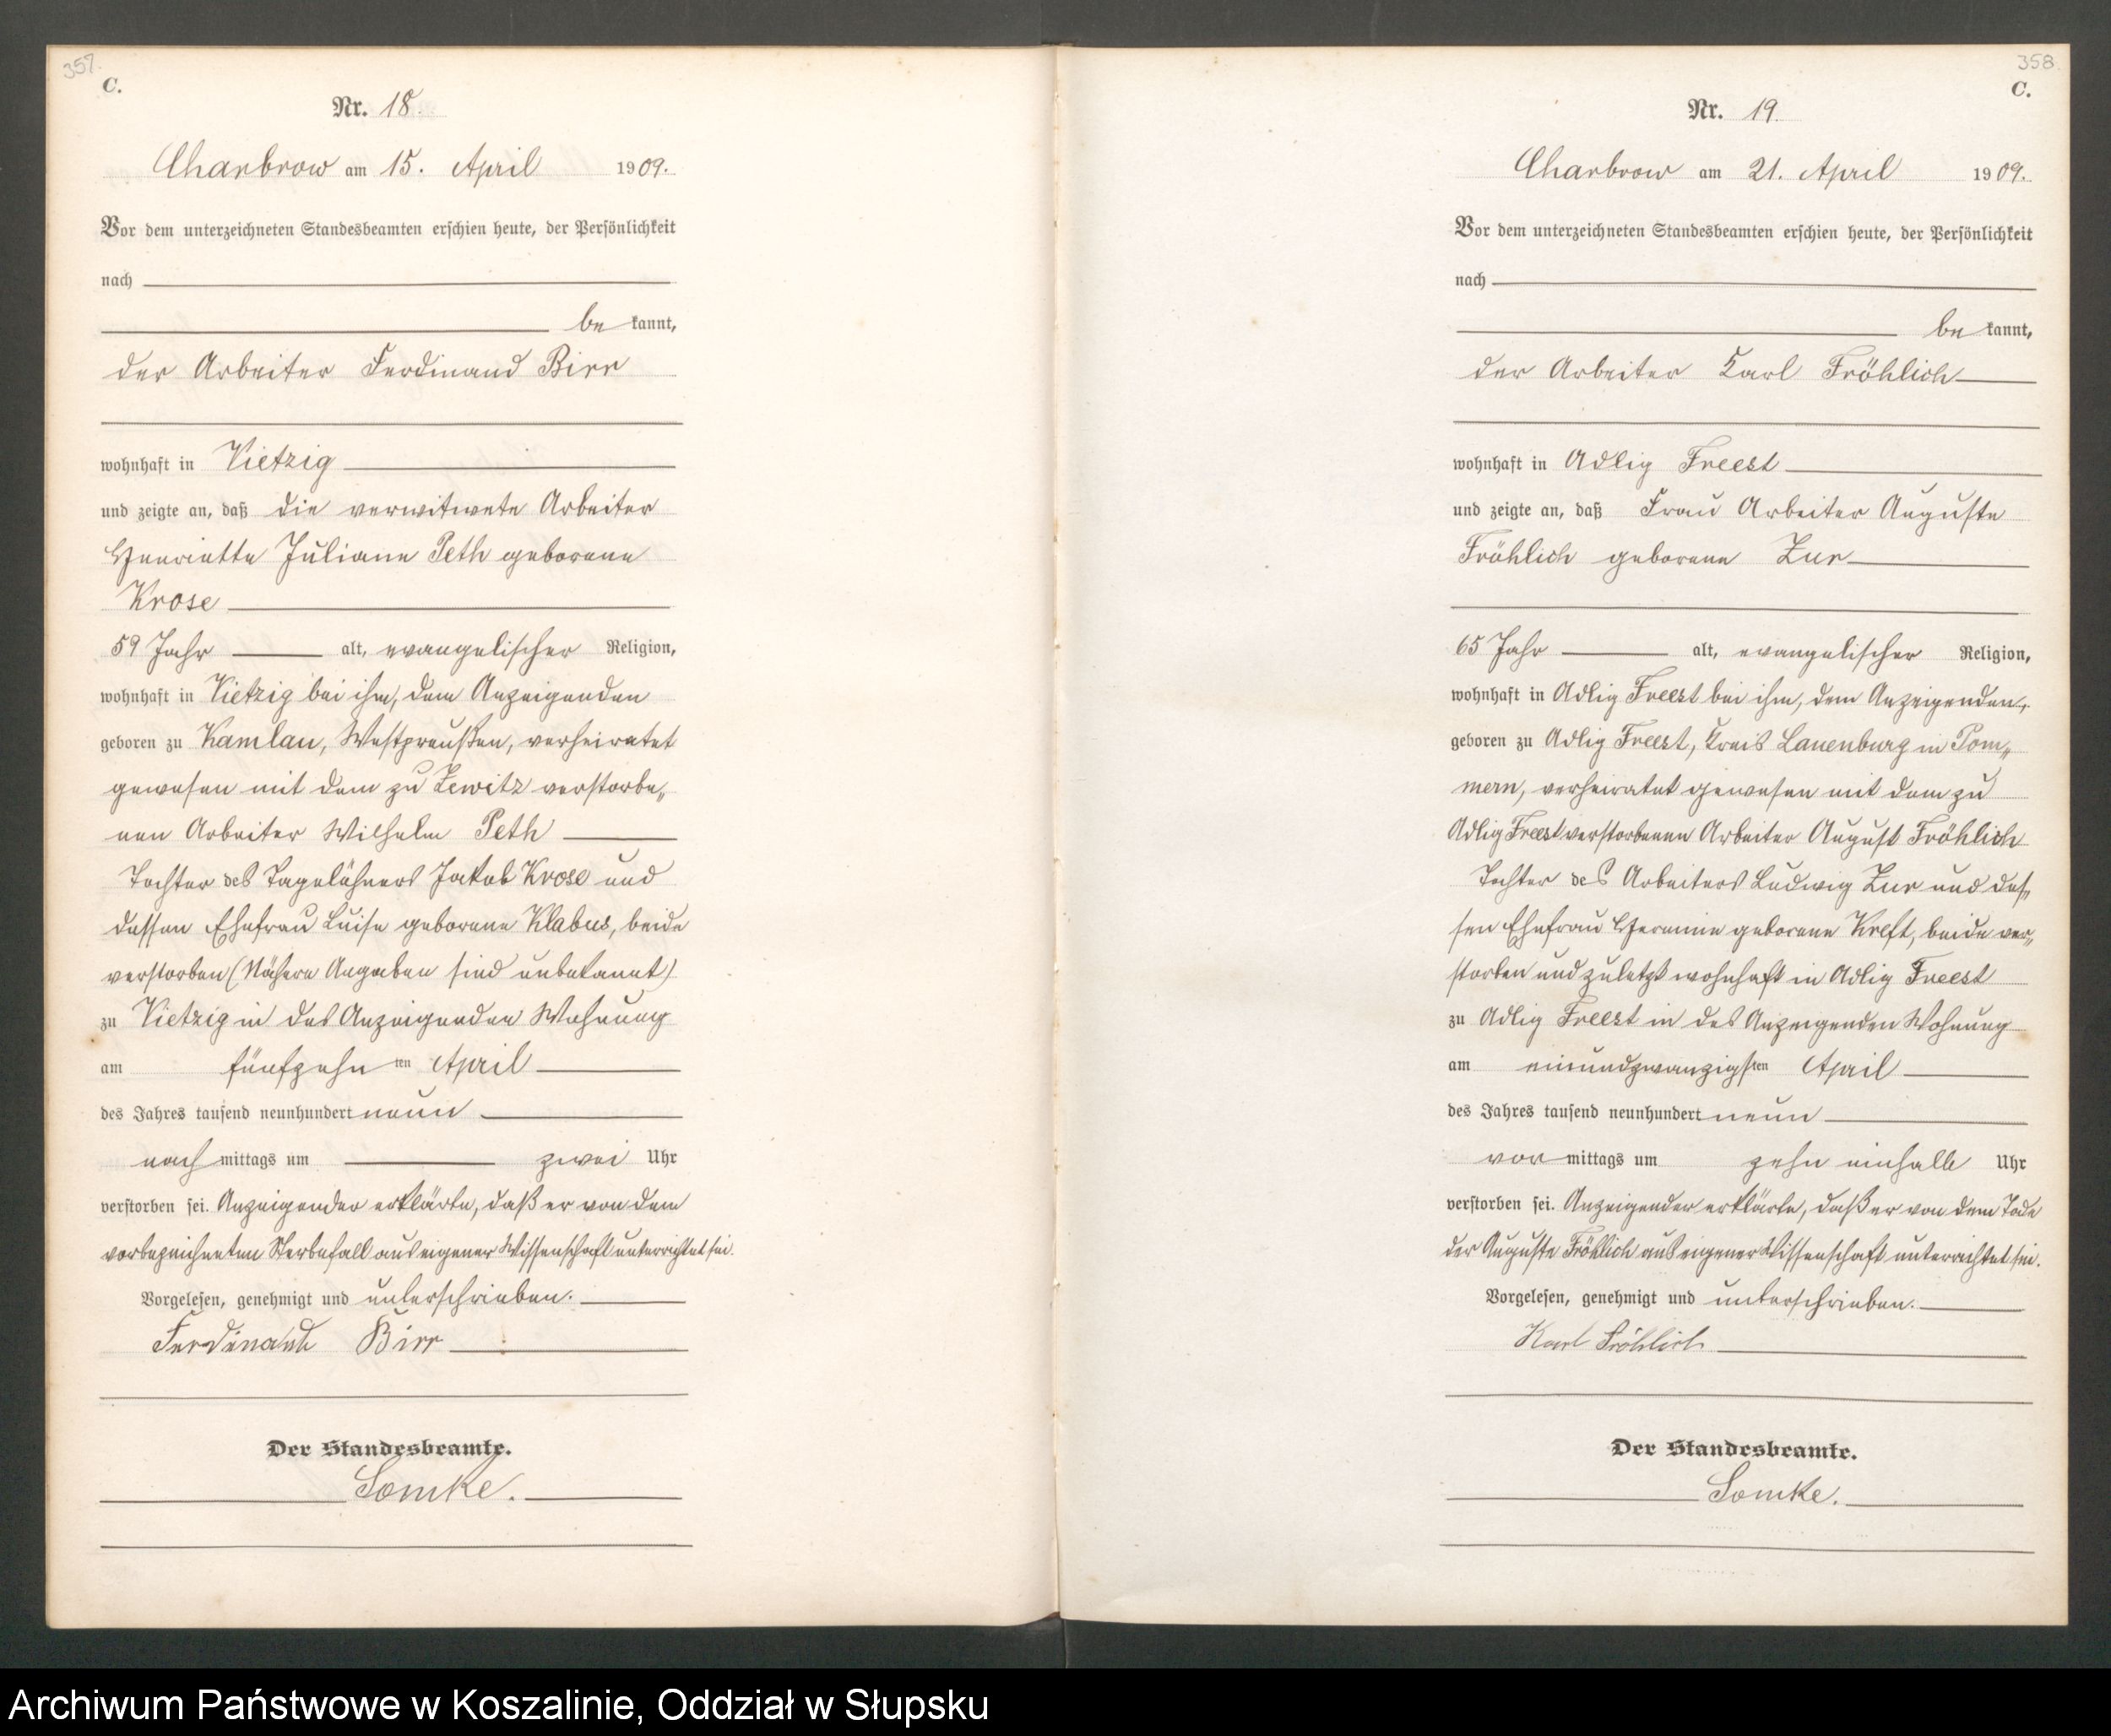 357.
C.
Nr. 18.
Charbrow am 15. April 1909.
Vor dem unterzeichneten Standesbeamten erschien heute, der Persönlichkeit
nach
be kannt,
der Arbeiter Ferdinand Birr
wohnhaft in Vietzig
und zeigte an, daß die verwitwete Arbeiter
Henriette Juliane Peth geborene
Krose
59 Jahr alt, evangelischer Religion,
wohnhaft in Vietzig bei ihm, dem Anzeigenden
geboren zu Kamlau, Westpreußen, verheiratet
gewesen mit dem zu Zewitz verstorbe„
nen Arbeiter Wilhelm Peth
Tochter des Tagelöhners Jakob Krose und
dessen Ehefrau Luise geborene Klabus, beide
verstorben (Nähere Angaben sind unbekannt)
zu Vietzig in des Anzeigenden Wohnung
am fünfzehn ten April
des Jahres tausend neunhundert neun
nach mittags um zwei Uhr
verstorben sei. Anzeigender erklärte, daß er von dem
vorbezeichneten Sterbefall aus eigener Wissenschaft unterrichtet sei.
Vorgelesen, genehmigt und unterschrieben.
Ferdinand Birr
Der Standesbeamte.
Lomke.
358.
C.
Nr. 19.
Charbrow am 21. April 1909.
Vor dem unterzeichneten Standesbeamten erschien heute, der Persönlichkeit
nach
be kannt,
der Arbeiter Karl Fröhlich
wohnhaft in Adlig Freest
und zeigte an, daß Frau Arbeiter Auguste
Fröhlich geborene Zur
65 Jahr alt, evangelischer Religion,
wohnhaft in Adlig Freest bei ihm, dem Anzeigenden,
geboren zu Adlig Freest, Kreis Lauenburg in Pom„
mern, verheiratet gewesen mit dem zu
Adlig Freest verstorbenen Arbeiter August Fröhlich
Tochter des Arbeiters Ludwig Zur und des„
sen Ehefrau geborene Kreft, beide ver„
storben und zuletzt wohnhaft in Adlig Freest
zu Adlig Freest in des Anzeigenden Wohnung
am einundzwanzigsten April
des Jahres tausend neunhundert neun
vor mittags um zehn einhalb Uhr
verstorben sei. Anzeigender erklärte, daß er von dem Tode
der Auguste Fröhlich aus eigener Wissenschaft unterrichtet sei.
Vorgelesen, genehmigt und unterschrieben.
Karl Fröhlich
Der Standesbeamte.
Lomke.
Archiwum Państwowe w Koszalinie, Oddział w Słupsku